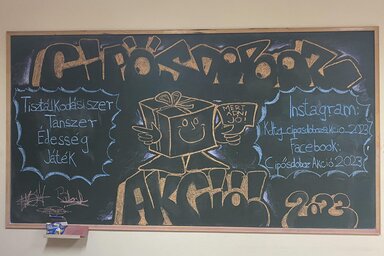 CIPŐSDOBOZ
Tisztálkodásiszer
Tanszer
Édesség
Játék
MERT
ADNI
JÓ!
Instagram:
Facebook:
Cipősdoboz Akció 2023
AKCIÓ!
2023